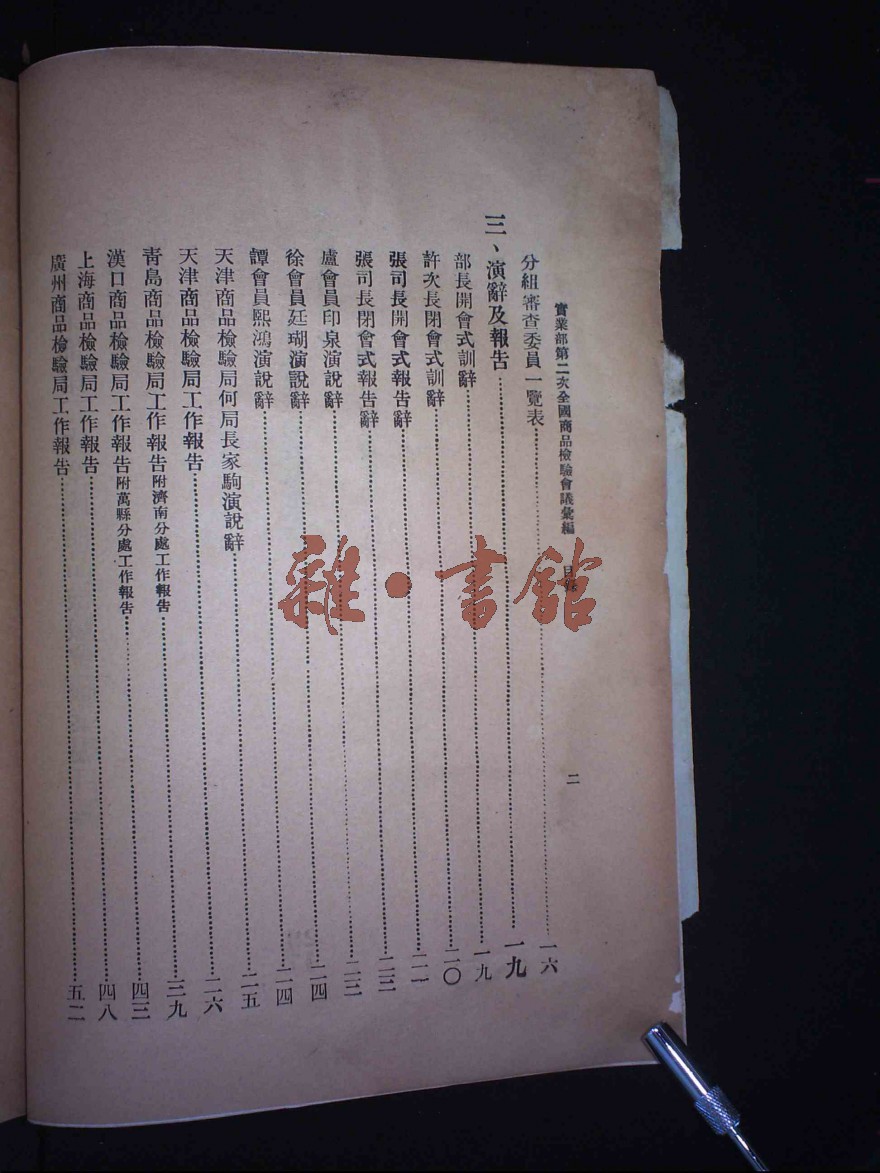 實業部第二次全國商品檢驗會議彙編 目錄 二
分組審查委員一覽表……一六
三、演辭及報告……一九
部長開會式訓辭……一九
許次長閉會式訓辭……二〇
張司長開會式報告辭……二一
張司長閉會式報告辭……二三
盧會員印泉演說辭……二三
徐會員廷瑚演說辭……二四
譚會員熙鴻演說辭……二四
天津商品檢驗局何局長家駒演說辭……二五
天津商品檢驗局工作報告……二六
靑島商品檢驗局工作報告附濟南分處工作報告……三九
漢口商品檢驗局工作報告附萬縣分處工作報告……四三
上海商品檢驗局工作報告……四八
廣州商品檢驗局工作報告……五二
雜·書館